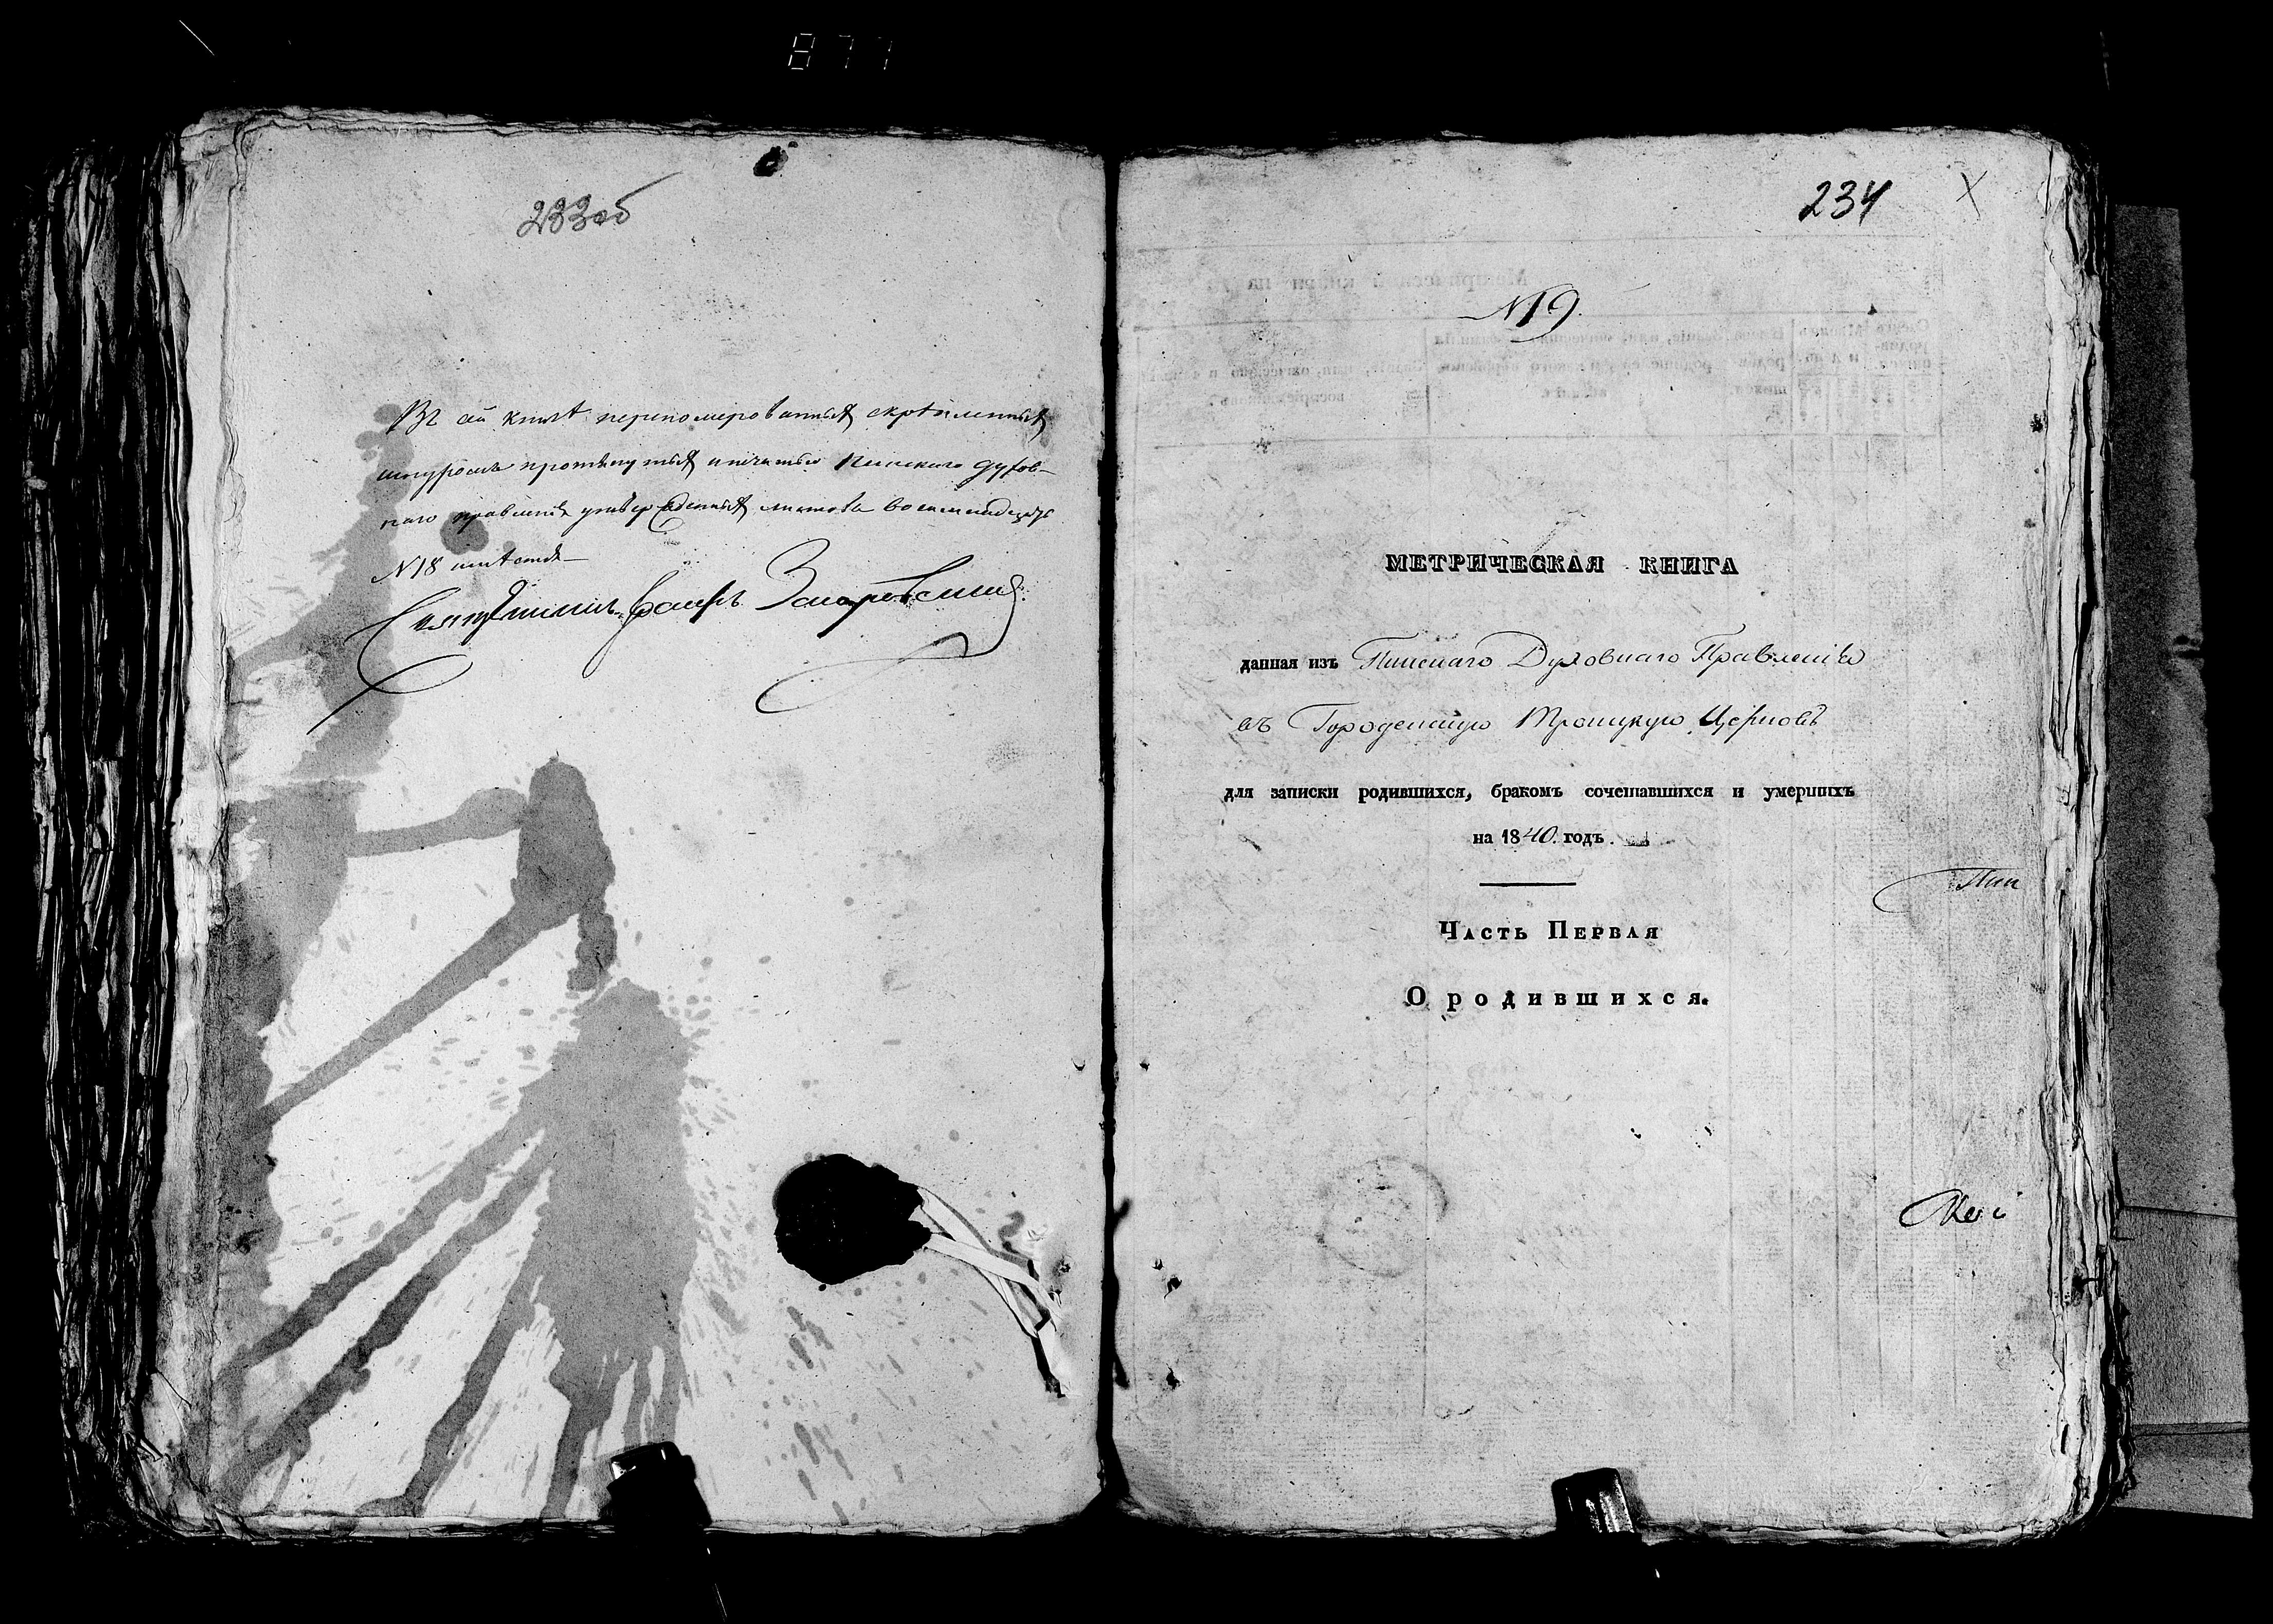 877
233об
Въ сей книгѣ переномерованныхъ скрѣпленныхъ
шнуромъ протянутыхъ и печатью Пинскаго духов-
наго правленія утвержденныхъ листовъ восемнадцать
N 18 листовъ
Священникъ Захаревскій
234
N 19.
МЕТРИЧЕСКАЯ КНИГА
данная изъ Пинскаго Духовнаго Правленія
въ Городенскую Троицкую Церковь
для записки родившихся, бракомъ сочетавшихся и умершихъ
на 1840. годъ.
Пин
ЧАСТЬ ПЕРВАЯ
О родившихся.